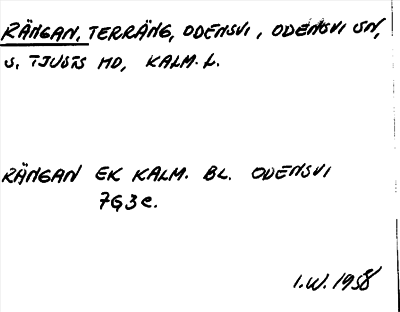 RÄNGAN, TERRÄNG, ODENSVI, ODENSVI SN,
S. TJUSTS HD, KALM. L.
RÄNGAN EK KALM. BL. ODENSVI
7G3e.
I.W. 1958